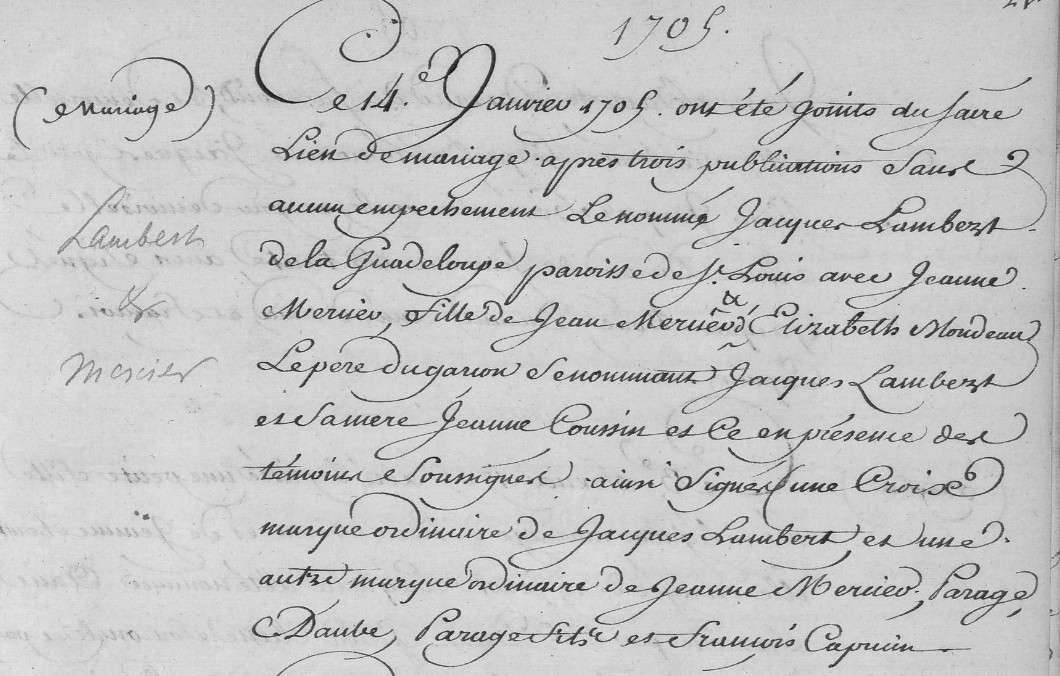 1705.
(Mariage)
Ce 14.e Janvier 1705. ont été joints du sacré
Lien de mariage. apres trois publications Sans
aucun empechement Le nommé Jacques Lambert
Lambert
de la Guadeloupe paroisse de St. Louis avec Jeanne
&
Mercier, fille de Jean Mercier & d'Elizabeth Mondeau
Mercier
Le pere du garcon se nommant Jacques Lambert
et sa mere Jeanne Coussin et Ce en présence des
témoins Soussignes ainsi Signés (une Croix
marque ordinaire de Jacques Lambert, et une
autre marque ordinaire de Jeanne Mercier, Parage,
Daube, Parage fils et François Capucin